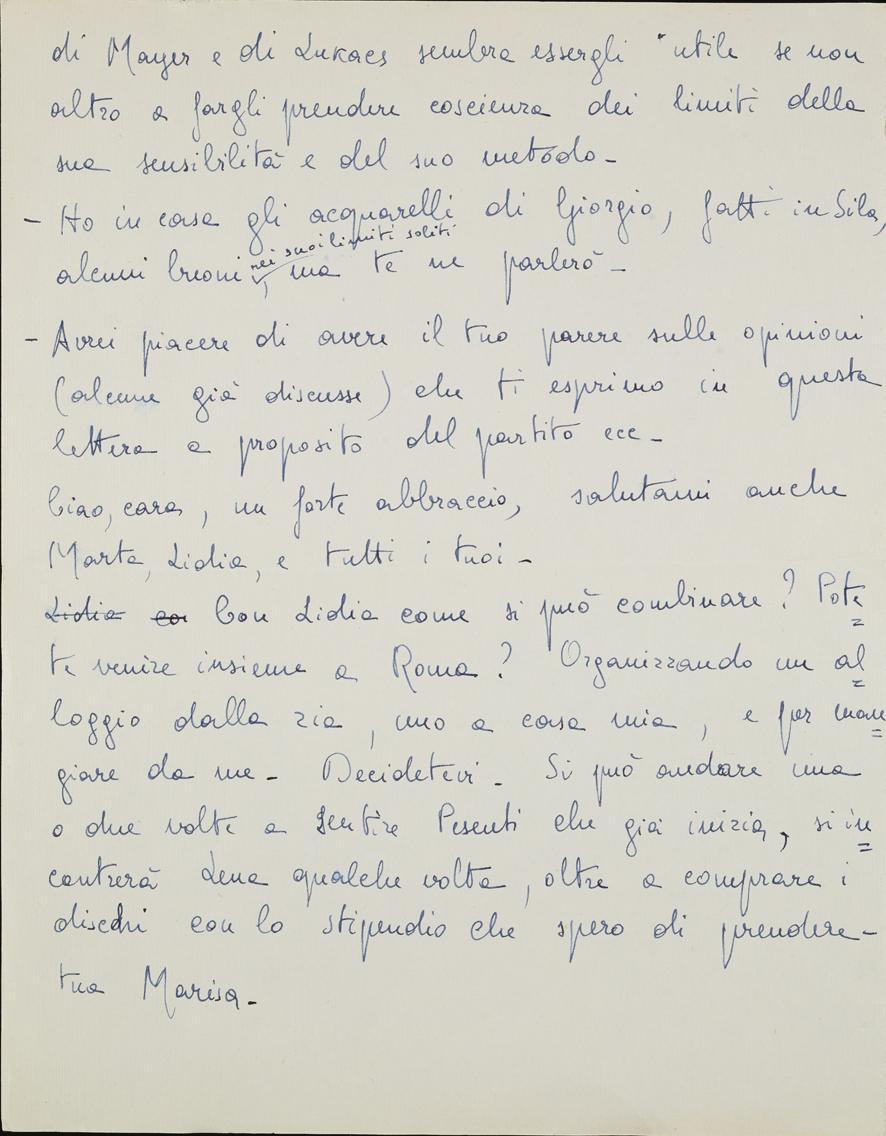 di Mayer e di Lukacs sembra essergli utile se non
altro a fargli prendere coscienza dei limiti della
sua sensibilità e del suo metodo -
- Ho in casa gli acquarelli di Giorgio, fatti in Sila,
nei suoi limiti soliti
alcuni buoni, ma te ne parlerò -
- Avrei piacere di avere il tuo parere sulle opinioni
(alcune già discusse) che ti esprimo in questa
lettera a proposito del partito ecc -
Ciao, cara, un forte abbraccio, salutami anche
Marta, Lidia, e tutti i tuoi -
Lidia co Con Lidia come si può combinare? Pote=
te venire insieme a Roma? Organizzando un al=
loggio dalla zia, uno a casa mia, e per man=
giare da me - Decidetevi - Si può andare una
o due volte a sentire Pesenti che già inizia, si in=
contrerà Lena qualche volta, oltre a comprare i
dischi con lo stipendio che spero di prendere -
tua Marisa -